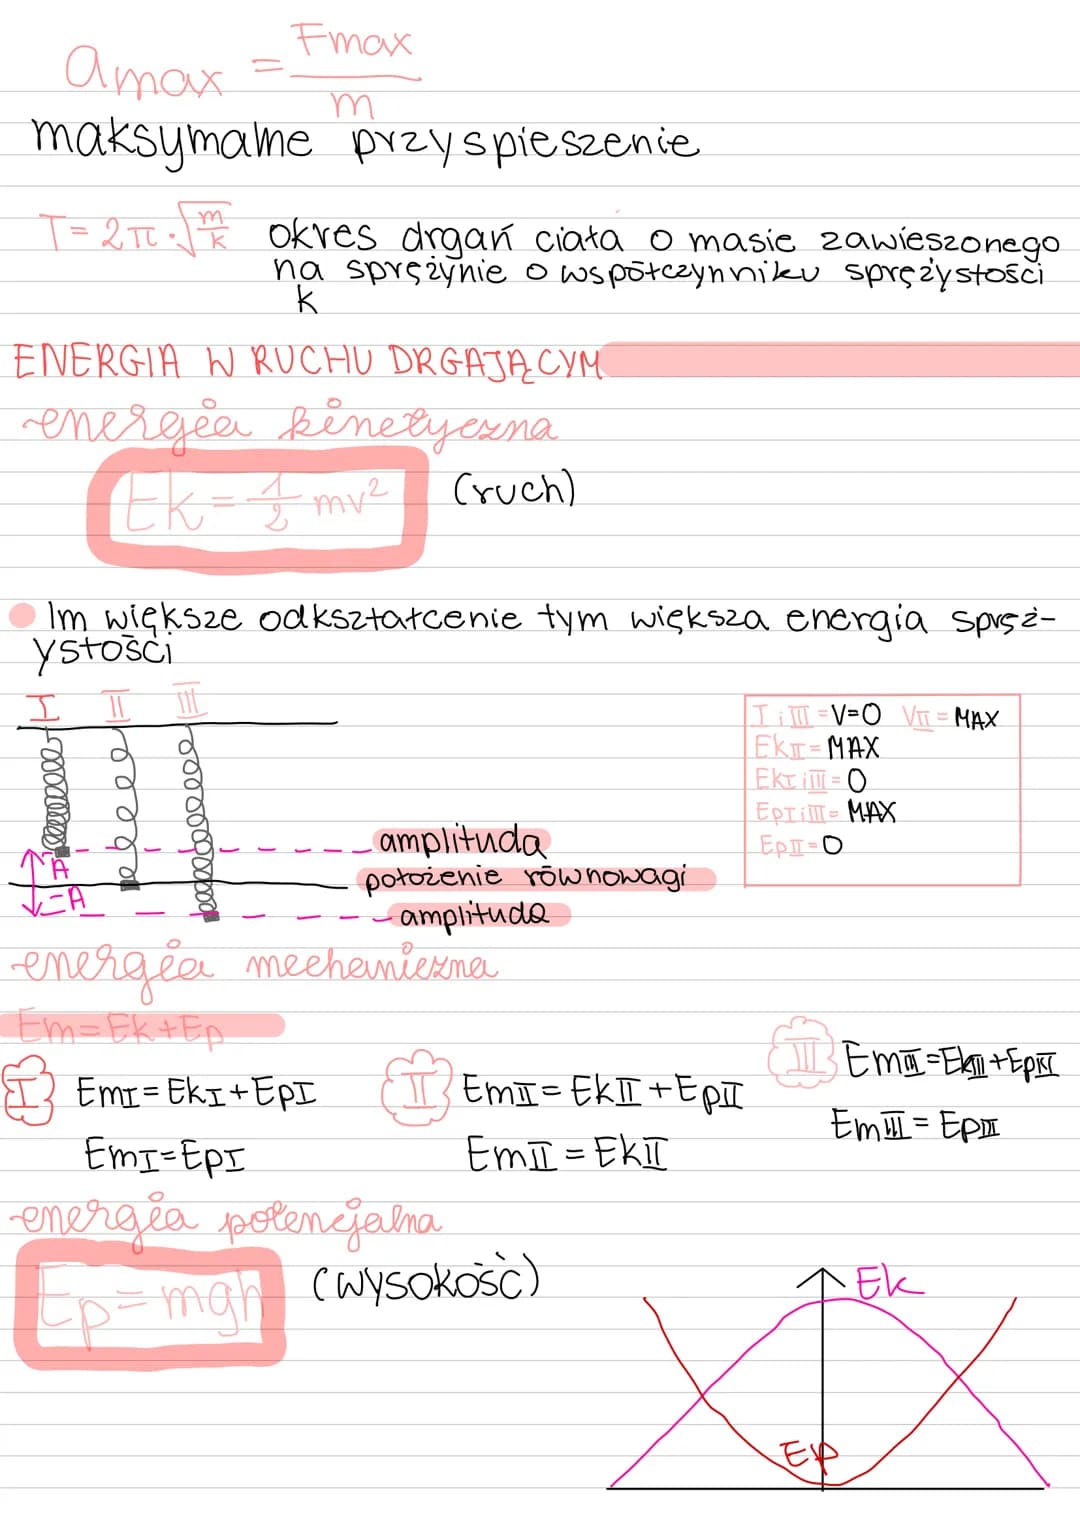 amax = Fmax/m
maksymalne przyspieszenie
T = 2π · √m/k okres drgań ciała o masie zawieszonego
na sprężynie o współczynniku sprężystości
k
ENERGIA W RUCHU DRGAJĄCYM
energia kinetyczna
Ek = 1/2 mv² (ruch)
Im większe odkształcenie tym większa energia spręż-
ystości
I II III
I i III = V=0 VII = MAX
EkII = MAX
EkI i III = 0
EpI i III = MAX
EpII = 0
amplituda
A
położenie równowagi
-A
amplituda
energia mechaniczna
Em = Ek + Ep
I EmI = EkI + EpI
EmI = EpI
II EmII = EkII + EpII
EmII = EkII
III EmIII = EkIII + EpIII
EmIII = EpIII
energia potencjalna
Ep = mgh (wysokość)
Ek
Ep